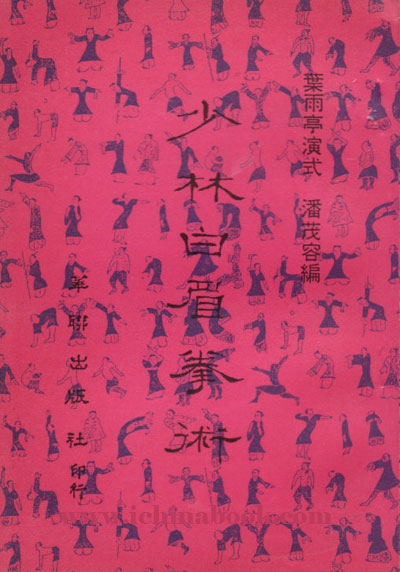 葉雨亭演式 潘茂容編
少林白眉拳術
華聯出版社印行
www.ichinabook.com